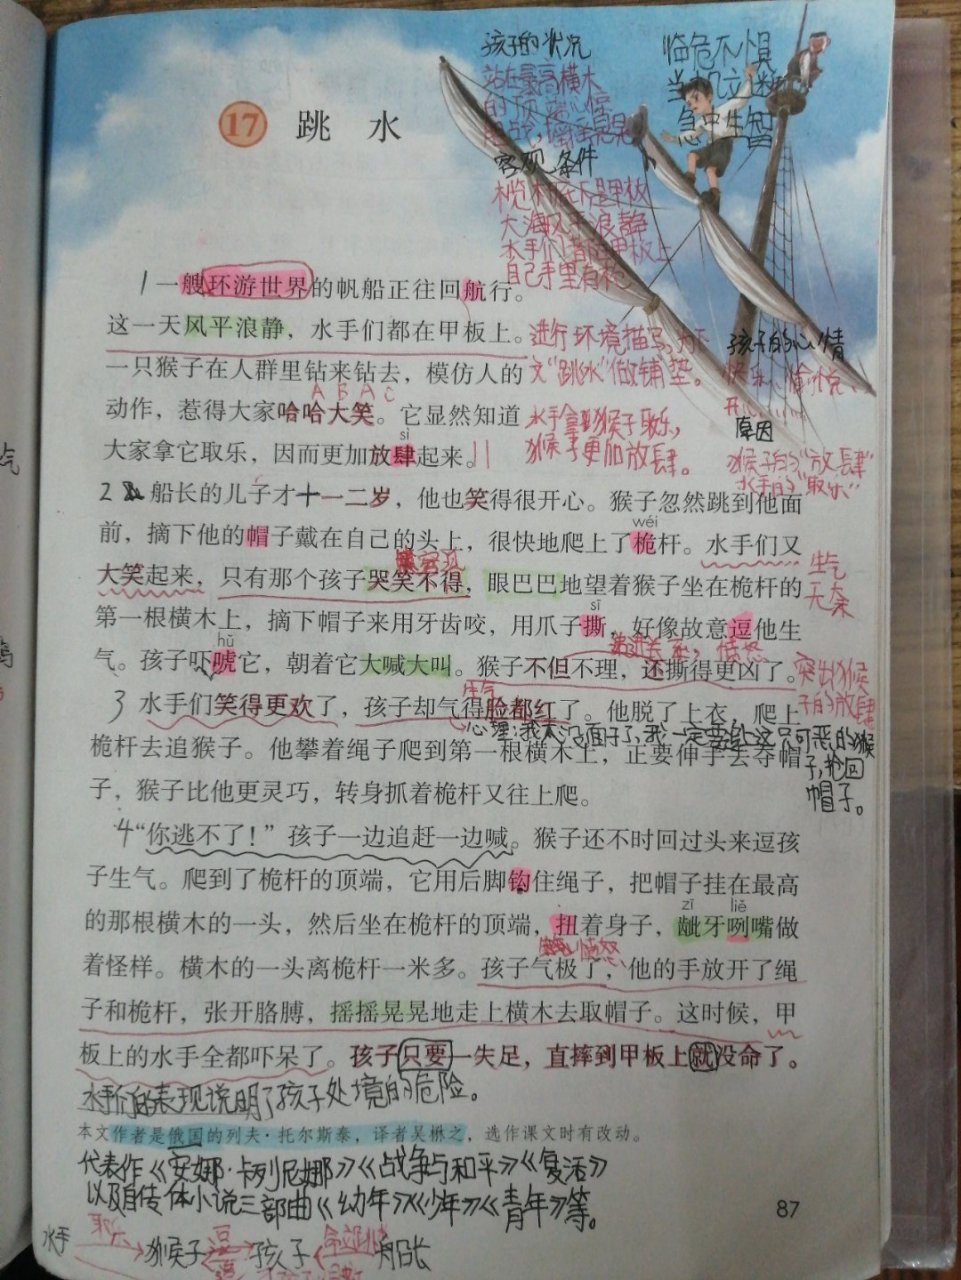 孩子的状况
站在最高横木
的顶端心惊
临危不惧
急中生智
客观条件
横木底下是甲板
大海风平浪静
水手们都在甲板上
自己手里有枪
17 跳水
1 一艘环游世界的帆船正往回航行。
这一天风平浪静，水手们都在甲板上。
一只猴子在人群里钻来钻去，模仿人的
A B A C
动作，惹得大家哈哈大笑。它显然知道
sì
大家拿它取乐，因而更加放肆起来。
进行环境描写，为下
文“跳水”做铺垫。
水手拿猴子取乐，
猴子更加放肆。
孩子的心情
快乐、愉悦、
开心……
原因
猴子的“放肆”
水手的“取乐”
2 船长的儿子才十一二岁，他也笑得很开心。猴子忽然跳到他面
wéi
前，摘下他的帽子戴在自己的头上，很快地爬上了桅杆。水手们又
大笑起来，只有那个孩子哭笑不得，眼巴巴地望着猴子坐在桅杆的
生气
无奈
sī
第一根横木上，摘下帽子来用牙齿咬，用爪子撕，好像故意逗他生
hǔ
递进关系，愤怒
气。孩子吓唬它，朝着它大喊大叫。猴子不但不理，还撕得更凶了。
突出猴
子的放肆
生气
3 水手们笑得更欢了，孩子却气得脸都红了。他脱了上衣，爬上
心理：我太没面子了，我一定要追上这只可恶的猴
子，抢回
帽子。
桅杆去追猴子。他攀着绳子爬到第一根横木上，正要伸手去夺帽
子，猴子比他更灵巧，转身抓着桅杆又往上爬。
4 “你逃不了！”孩子一边追赶一边喊。猴子还不时回过头来逗孩
子生气。爬到了桅杆的顶端，它用后脚钩住绳子，把帽子挂在最高
zī liě
的那根横木的一头，然后坐在桅杆的顶端，扭着身子，龇牙咧嘴做
愤怒
着怪样。横木的一头离桅杆一米多。孩子气极了，他的手放开了绳
子和桅杆，张开胳膊，摇摇晃晃地走上横木去取帽子。这时候，甲
板上的水手全都吓呆了。孩子只要一失足，直摔到甲板上就没命了。
水手们的表现说明了孩子处境的危险。
本文作者是俄国的列夫·托尔斯泰，译者吴楙之，选作课文时有改动。
代表作《安娜·卡列尼娜》《战争与和平》《复活》
以及自传体小说三部曲《幼年》《少年》《青年》等。
87
水手 取乐 猴子 逗 孩子 命令跳水 船长